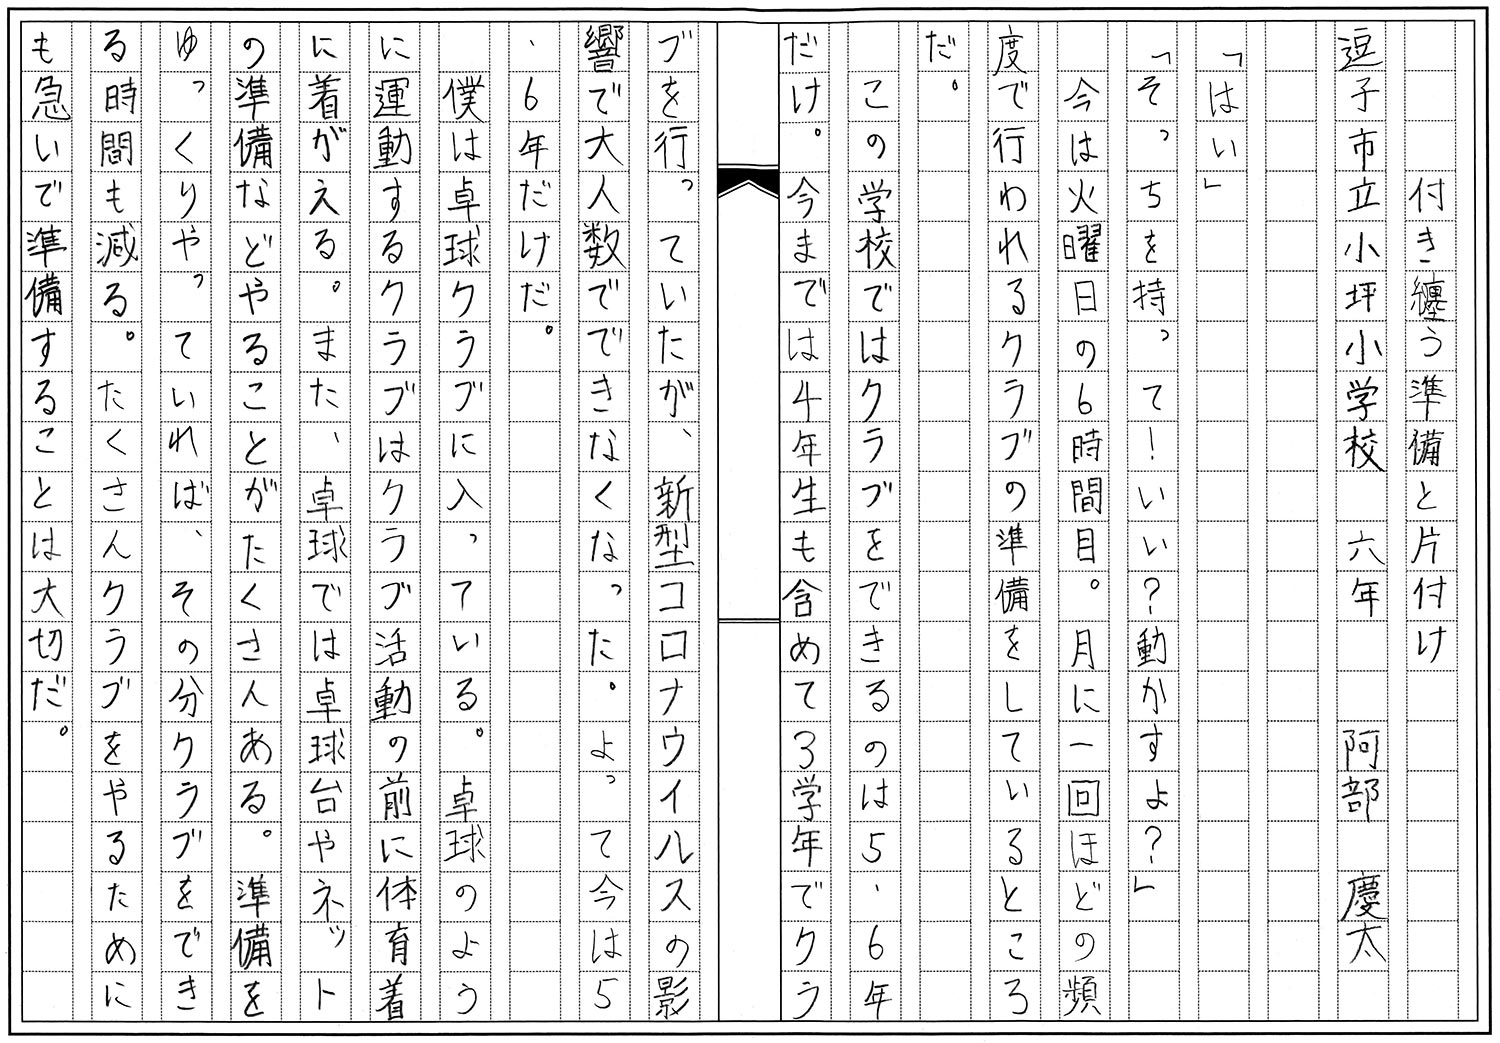 付き纏う準備と片付け
逗子市立小坪小学校 六年 阿部 慶太
「はい」
「そっちを持って！いい？動かすよ？」
今は火曜日の6時間目。月に一回ほどの頻
度で行われるクラブの準備をしているところ
だ。
この学校ではクラブをできるのは5、6年
だけ。今までは4年生も含めて3学年でクラ
ブを行っていたが、新型コロナウイルスの影
響で大人数でできなくなった。よって今は5
、6年だけだ。
僕は卓球クラブに入っている。卓球のよう
に運動するクラブはクラブ活動の前に体育着
に着がえる。また、卓球では卓球台やネット
の準備などやることがたくさんある。準備を
ゆっくりやっていれば、その分クラブをでき
る時間も減る。たくさんクラブをやるために
も急いで準備することは大切だ。